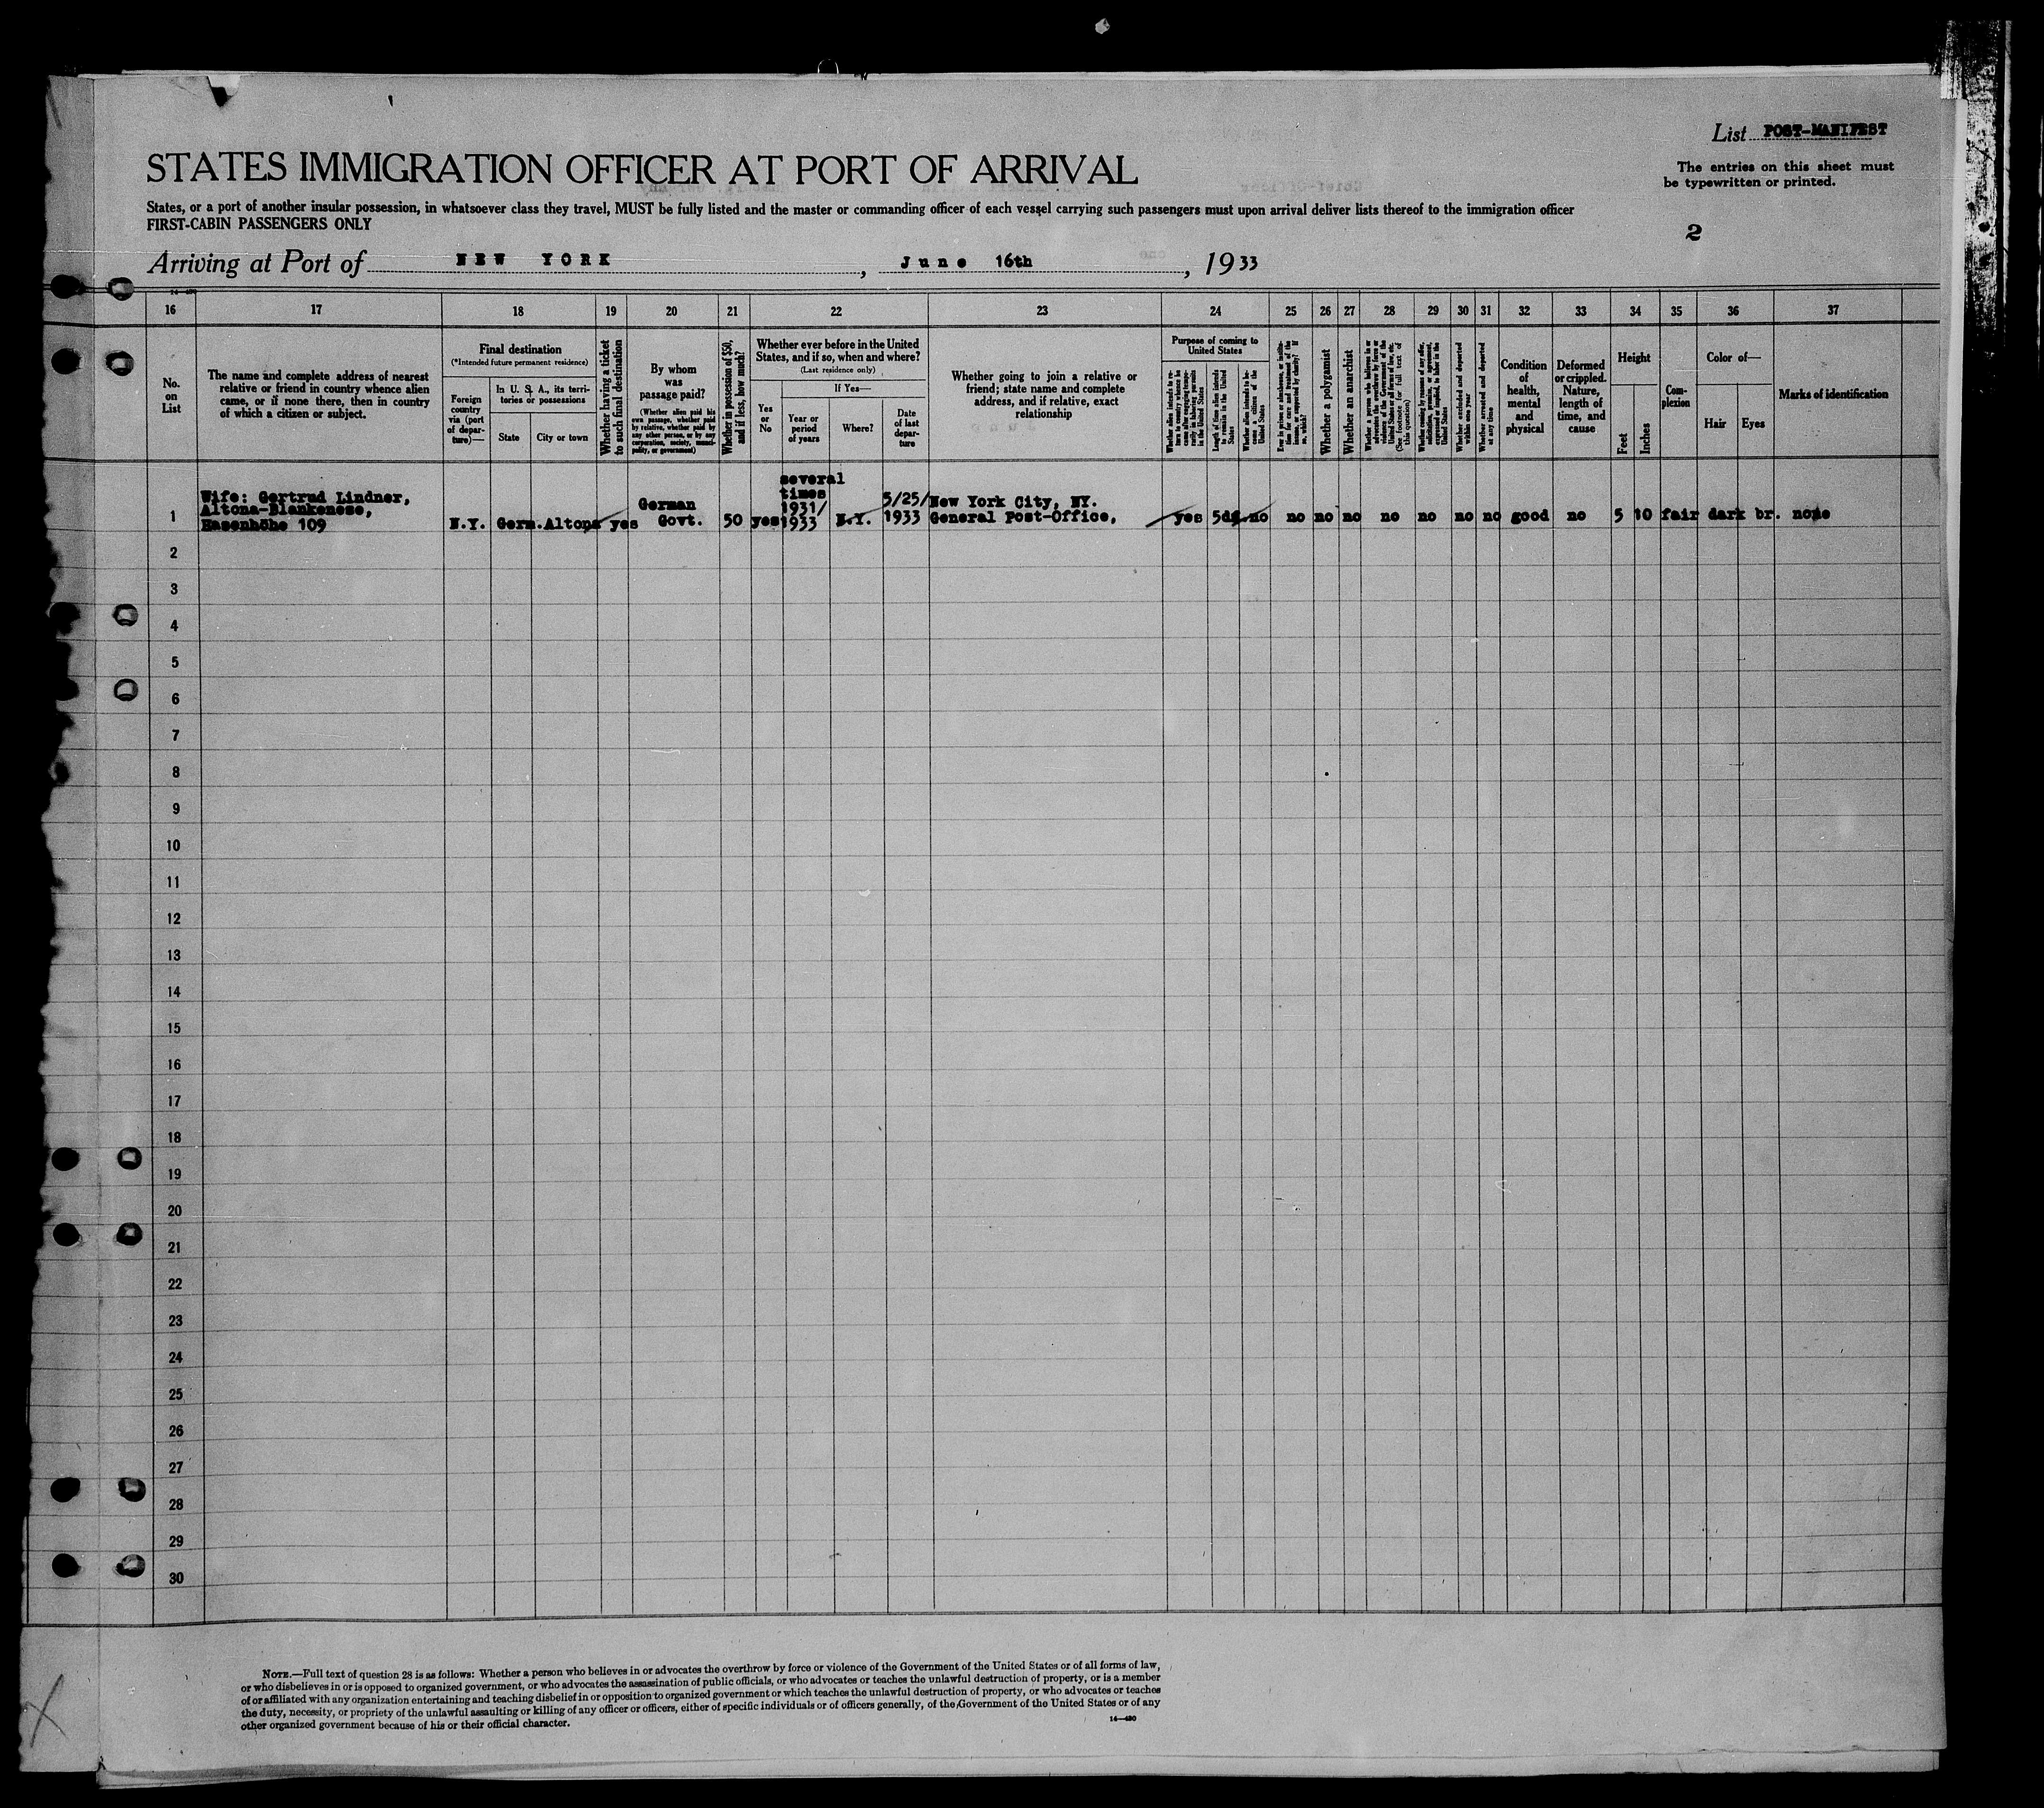 List POST-MANIFEST
STATES IMMIGRATION OFFICER AT PORT OF ARRIVAL
The entries on this sheet must
be typewritten or printed.
States, or a port of another insular possession, in whatsoever class they travel, MUST be fully listed and the master or commanding officer of each vessel carrying such passengers must upon arrival deliver lists thereof to the immigration officer
FIRST-CABIN PASSENGERS ONLY
2
Arriving at Port of NEW YORK, June 16th, 1933
16 17 18 19 20 21 22 23 24 25 26 27 28 29 30 31 32 33 34 35 36 37
No.
on
List
The name and complete address of nearest
relative or friend in country whence alien
came, or if none there, then in country
of which a citizen or subject.
Final destination
(*Intended future permanent residence)
Foreign
country
via (port
of depar-
ture)—
In U. S. A., its terri-
tories or possessions
State
City or town
Whether having a ticket
to such final destination
By whom
was
passage paid?
(Whether alien paid his
own passage, whether paid
by relative, whether paid by
any other person, or by any
corporation, society, munici-
pality, or government)
Whether in possession of $50,
and if less, how much?
Whether ever before in the United
States, and if so, when and where?
(Last residence only)
Yes
or
No
If Yes—
Year or
period
of years
Where?
Date
of last
depar-
ture
Whether going to join a relative or
friend; state name and complete
address, and if relative, exact
relationship
Purpose of coming to
United States
Whether alien intends to re-
turn to country whence he
came after engaging tempo-
rarily in laboring pursuits
in the United States
Length of time alien intends
to remain in the United
States
Whether alien intends to be-
come a citizen of the
United States
Ever in prison or almshouse, or institu-
tion for care and treatment of the
insane, or supported by charity? If
so, which?
Whether a polygamist
Whether an anarchist
Whether a person who believes in or
advocates the overthrow by force or
violence of the Government of the
United States or all forms of law, etc.
(See footnote for full text of
this question)
Whether coming by reason of any offer,
solicitation, promise, or agreement,
expressed or implied, to labor in the
United States
Whether excluded and deported
within one year
Whether arrested and deported
at any time
Condition
of
health,
mental
and
physical
Deformed
or crippled.
Nature,
length of
time, and
cause
Height
Feet
Inches
Com-
plexion
Color of—
Hair
Eyes
Marks of identification
1
Wife: Gertrud Lindner,
Altona-Blankenese,
Hasenhöhe 109
N.Y. Germ. Altona yes
German
Govt.
50 yes
several
times
1931/
1933
N.Y.
5/25/
1933
New York City, NY.
General Post-Office,
yes 5ds no no no no no no no no good no 5 10 fair dark br. none
2
3
4
5
6
7
8
9
10
11
12
13
14
15
16
17
18
19
20
21
22
23
24
25
26
27
28
29
30
NOTE.—Full text of question 28 is as follows: Whether a person who believes in or advocates the overthrow by force or violence of the Government of the United States or of all forms of law,
or who disbelieves in or is opposed to organized government, or who advocates the assassination of public officials, or who advocates or teaches the unlawful destruction of property, or is a member
of or affiliated with any organization entertaining and teaching disbelief in or opposition to organized government or which teaches the unlawful destruction of property, or who advocates or teaches
the duty, necessity, or propriety of the unlawful assaulting or killing of any officer or officers, either of specific individuals or of officers generally, of the Government of the United States or of any
other organized government because of his or their official character.
14—430